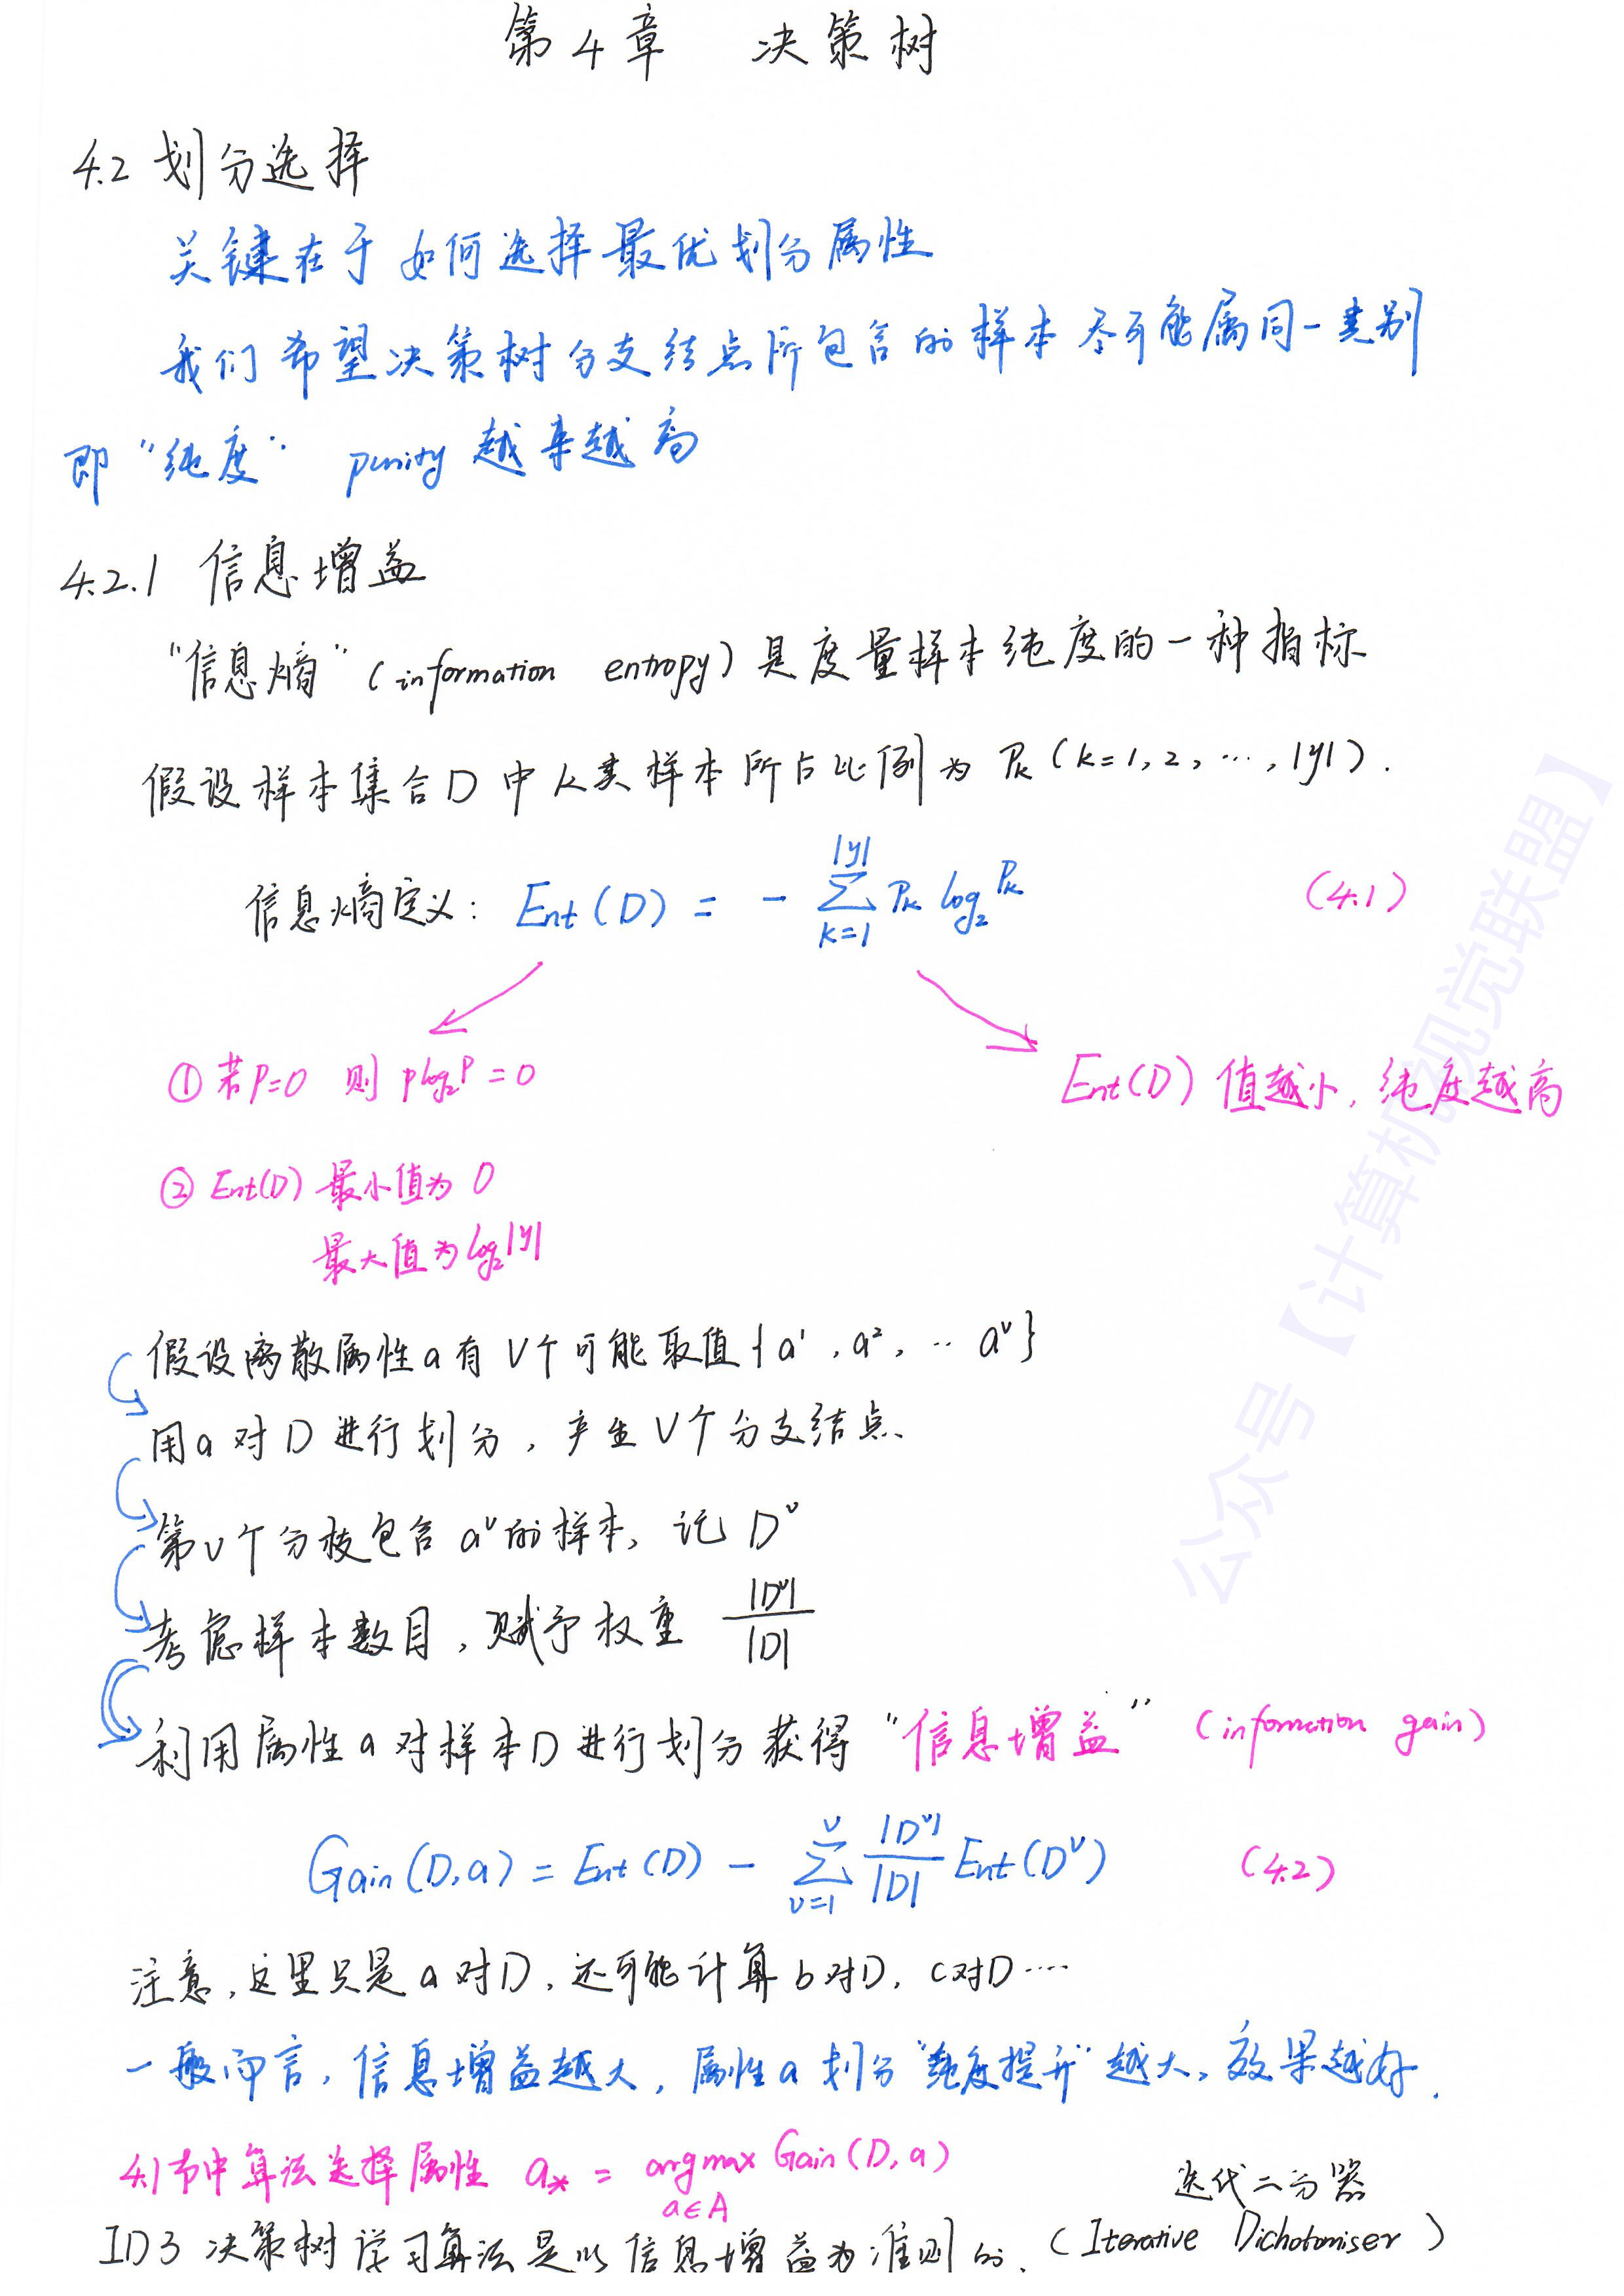 第4章 决策树
4.2 划分选择
关键在于如何选择最优划分属性
我们希望决策树分支结点所包含的样本尽可能属同一类别
即"纯度" purity 越来越高
4.2.1 信息增益
"信息熵"(information entropy)是度量样本纯度的一种指标
假设样本集合D中k类样本所占比例为 Pk (k=1,2,…,|y|).
信息熵定义: Ent(D) = - ∑_{k=1}^{|y|} Pk log₂Pk (4.1)
①若P=0 则 Plog₂P=0
Ent(D)值越小,纯度越高
② Ent(D)最小值为0
最大值为log₂|y|
假设离散属性a有V个可能取值{a¹,a²,…aᵛ}
用a对D进行划分,产生V个分支结点、
第v个分枝包含aᵛ的样本,记Dᵛ
考虑样本数目,赋予权重 |Dᵛ|/|D|
利用属性a对样本D进行划分获得"信息增益"(information gain)
Gain(D,a) = Ent(D) - ∑_{v=1}^{V} |Dᵛ|/|D| Ent(Dᵛ) (4.2)
注意,这里只是a对D,还可能计算b对D,c对D…
一般而言,信息增益越大,属性a划分"纯度提升"越大,效果越好.
4.1节中算法选择属性 a* = argmax_{a∈A} Gain(D,a)
迭代二分器
ID3 决策树学习算法是以信息增益为准则的.(Iterative Dichotomiser)
公众号【计算机视觉联盟】